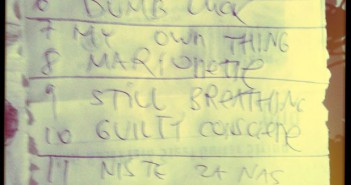 6 DUMB LUCK
7 MY OWN THING
8 MARIONETTE
9 STILL BREATHING
10 GUILTY CONSCIENCE
11 NISTE ZA NAS